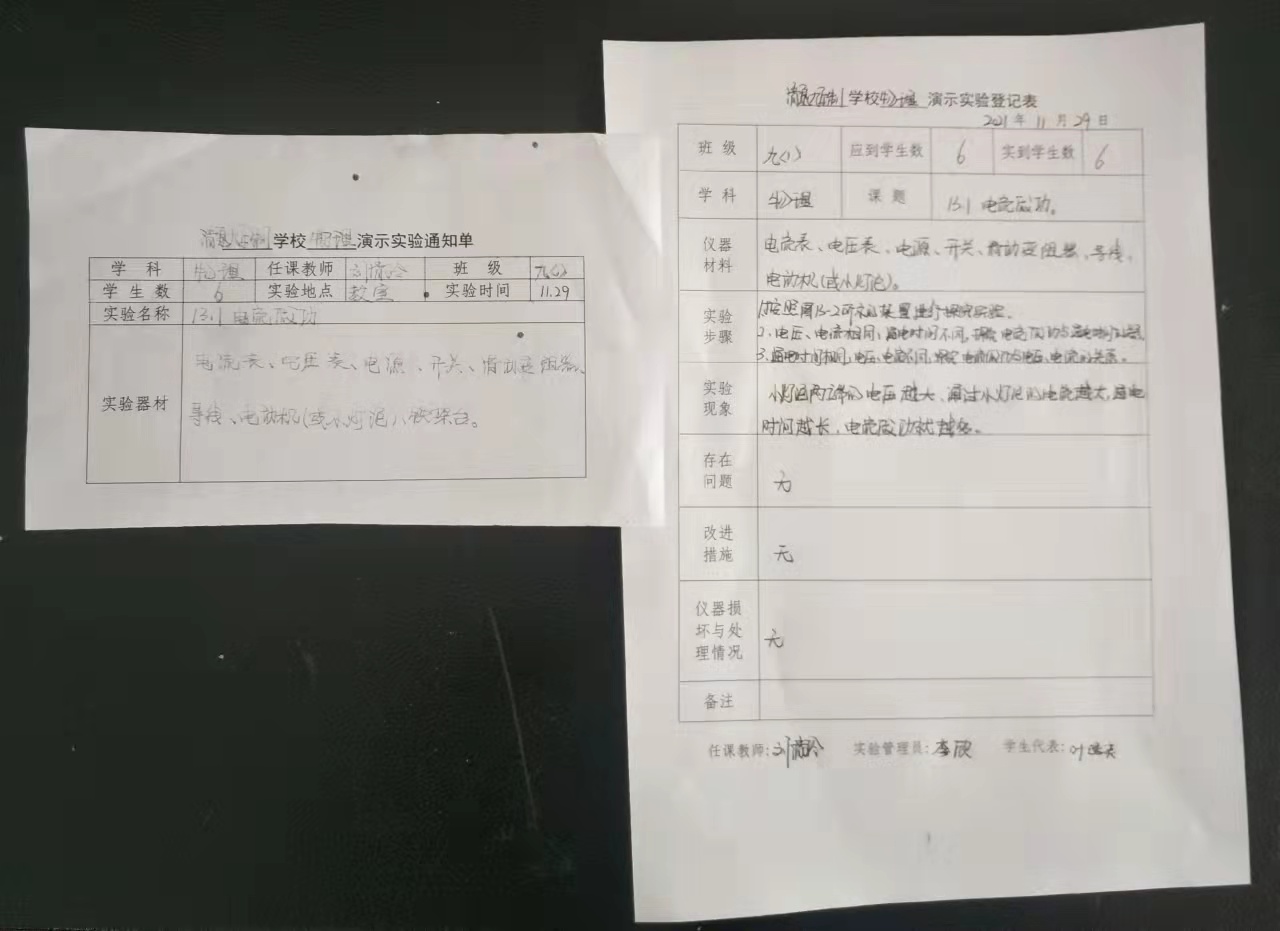 学校物理演示实验通知单
学 科 物理 任课教师 刘 班 级 九(1)
学 生 数 6 实验地点 教室 实验时间 11.29
实验名称 13.1 电流做功
实验器材
电流表、电压表、电源、开关、滑动变阻器、
导线、电动机(或小灯泡)、铁架台。
学校物理 演示实验登记表
2021 年 11 月 29 日
班 级 九(1) 应到学生数 6 实到学生数 6
学 科 物理 课 题 13.1 电流做功。
仪器材料
电流表、电压表、电源、开关、滑动变阻器、导线,
电动机(或小灯泡)。
实验步骤
1.按照图13-2所示的装置进行探究实验。
2.电压、电流相同,通电时间不同,探究电流做功与通电时间的关系
3.通电时间相同,电压、电流不同,探究电流做功与电压、电流的关系。
实验现象
小灯泡两端的电压越大、通过小灯泡的电流越大,通电
时间越长,电流做功就越多。
存在问题
无
改进措施
无
仪器损坏与处理情况
无
备注
任课教师:刘 实验管理员:李欣 学生代表:叶